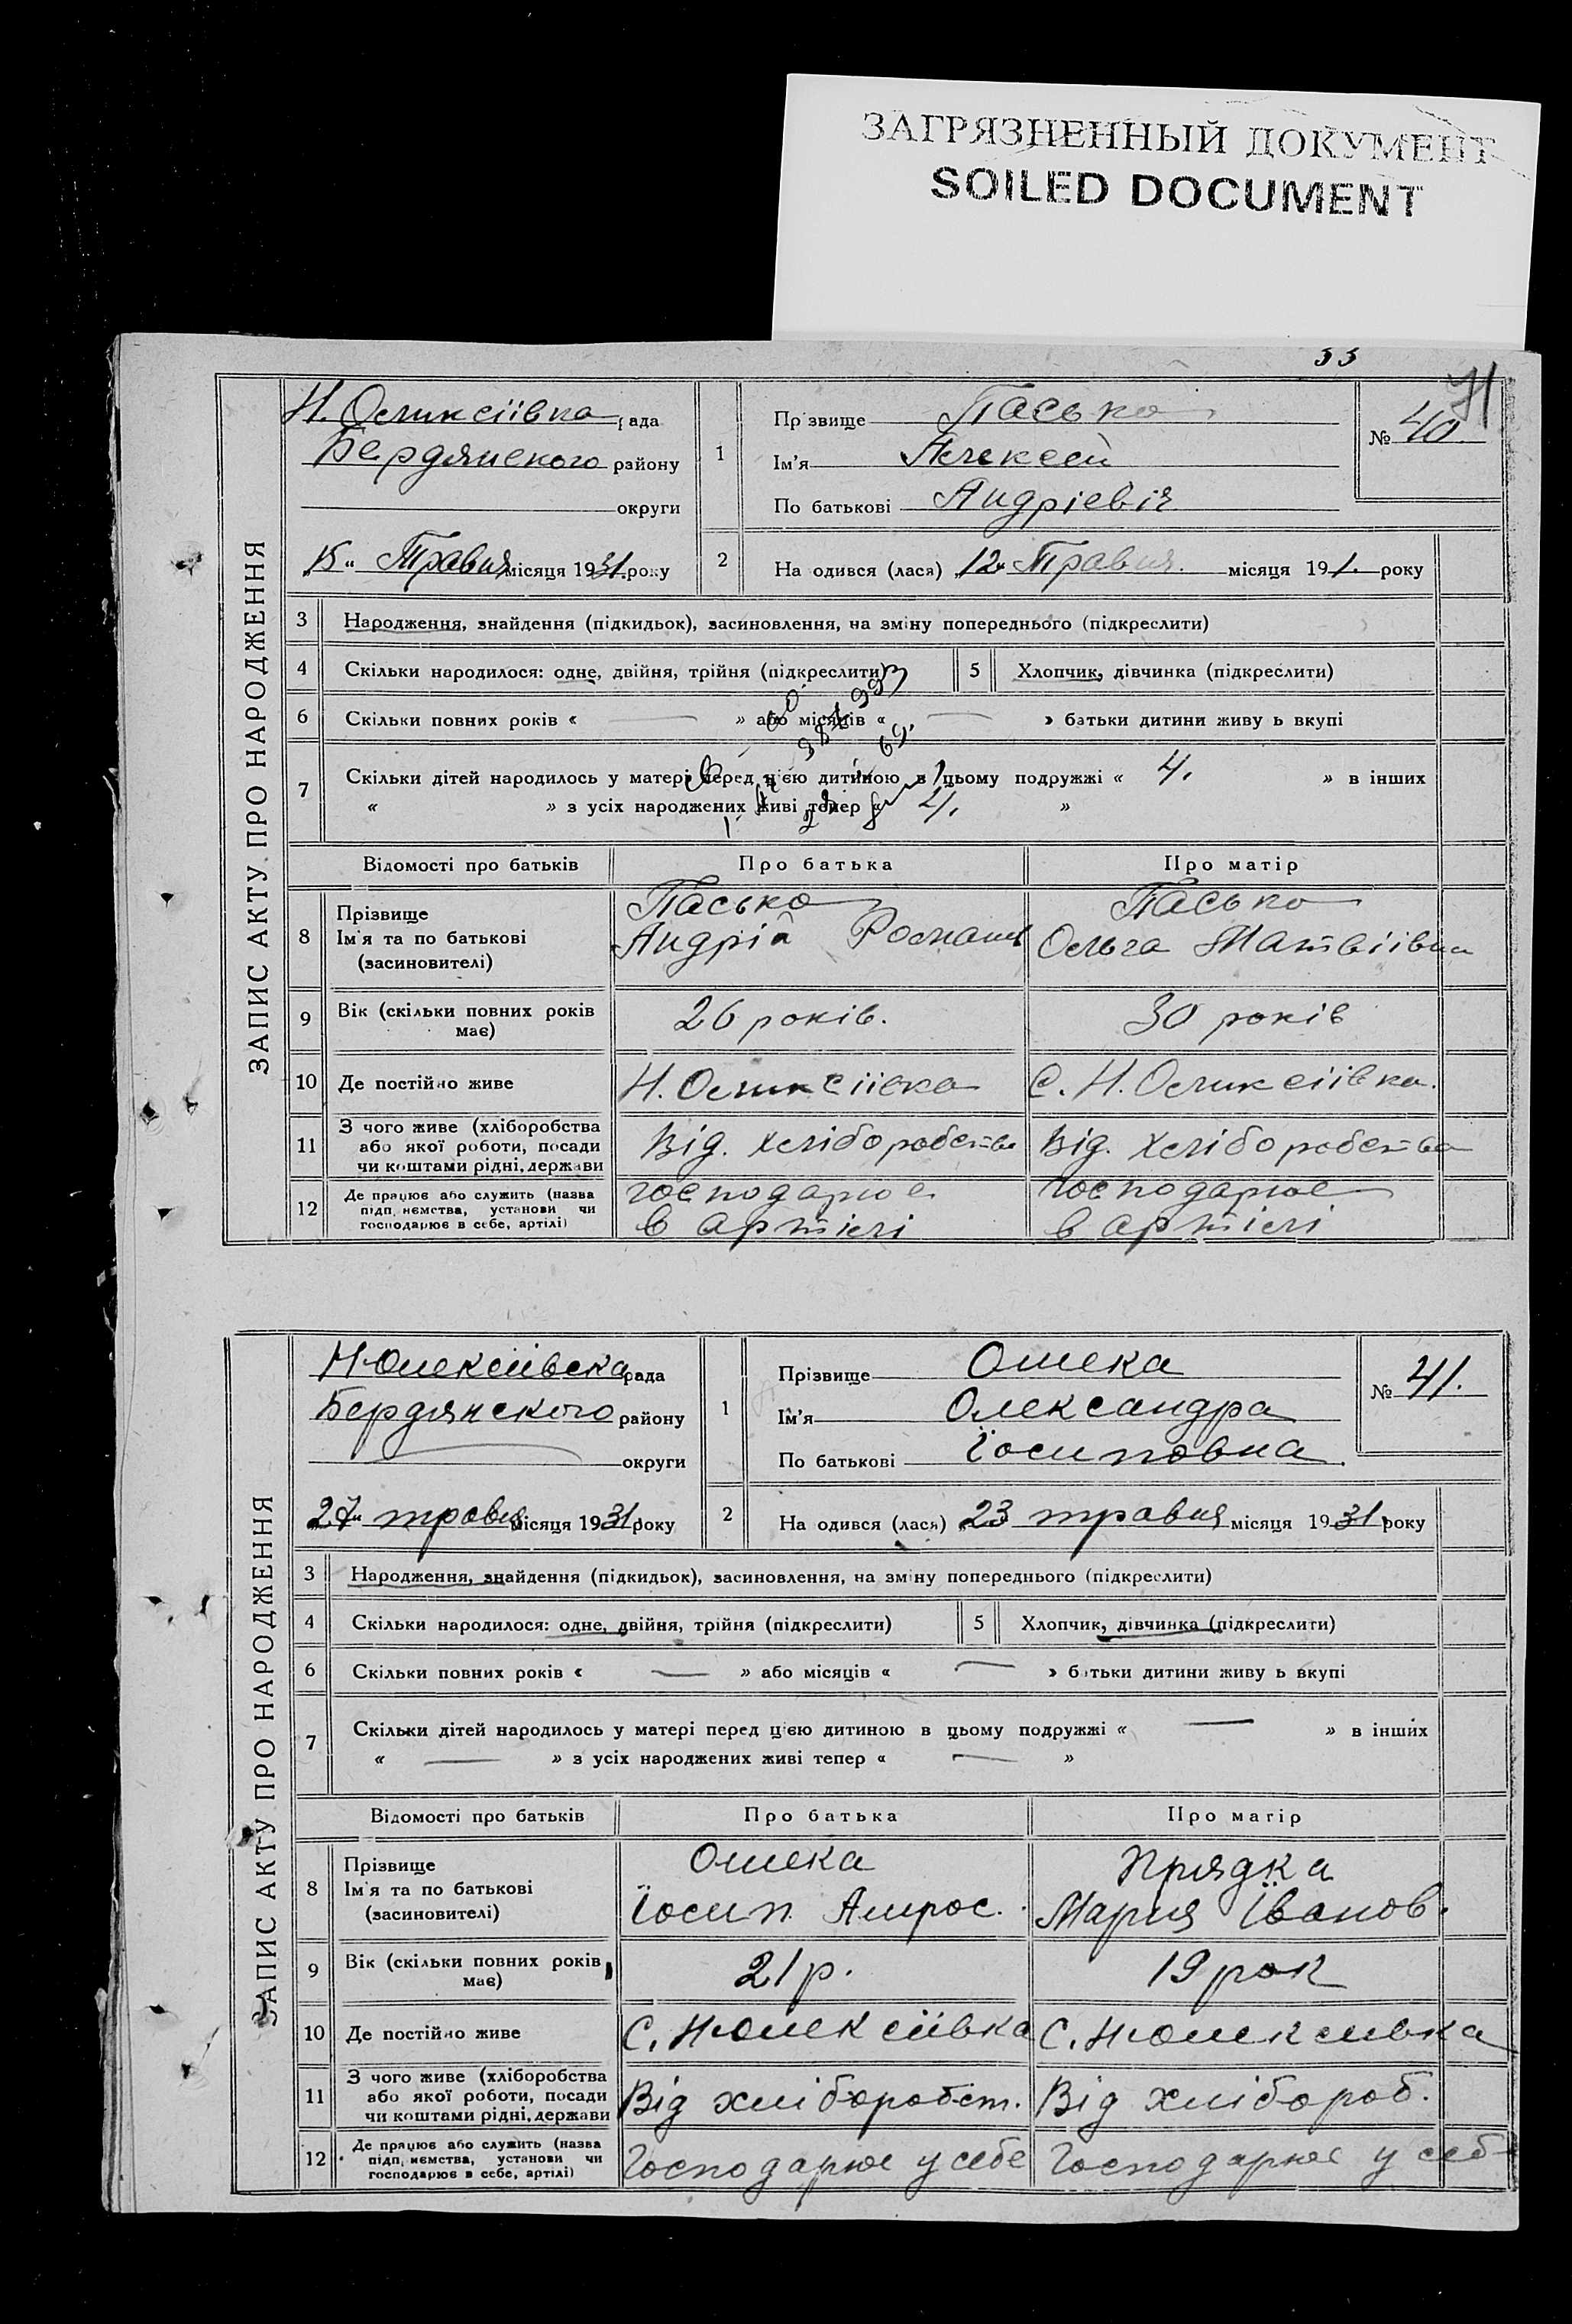 ЗАГРЯЗНЕННЫЙ ДОКУМЕНТ
SOILED DOCUMENT
33
71
ЗАПИС АКТУ ПРО НАРОДЖЕННЯ
Н. Оликсіівка рада
Бердянского району
округи
„15“ Травня місяця 1931. року
1
Прізвище Пасько
Ім'я Алексей
По батькові Андріевіч
№ 40.
2
На одився (лася) „12“ Травня. місяця 191. року
3 Народження, знайдення (підкидьок), засиновлення, на зміну попереднього (підкреслити)
4 Скільки народилося: одне, двійня, трійня (підкреслити)
5 Хлопчик, дівчинка (підкреслити)
6 Скільки повних років « — » або місяців « — » батьки дитини живу ь вкупі
7 Скільки дітей народилось у матері перед цією дитиною в цьому подружжі « 4. » в інших
« » з усіх народжених живі тепер « 4. »
Відомості про батьків Про батька Про матір
8 Прізвище Ім'я та по батькові (засиновителі)
Пасько
Андрій
Пасько
Ольга Матвіівна
9 Вік (скільки повних років має) 26 років. 30 років
10 Де постійно живе Н. Оликсіівка С. Н. Оликсіівка.
11 З чого живе (хліборобства або якої роботи, посади чи коштами рідні, держави
Від. хліборобства Від. хліборобства
12 Де працює або служить (назва підп, иємства, установи чи господарює в себе, артілі)
господарює в артілі
господарює в артілі
ЗАПИС АКТУ ПРО НАРОДЖЕННЯ
Н-Олексіівска рада
Бердянского району
округи
„27“ травня місяця 1931 року
1
Прізвище Ошека
Ім'я Олександра
По батькові Їосиповна
№ 41.
2
На одився (лася) „23“ травня місяця 1931. року
3 Народження, знайдення (підкидьок), засиновлення, на зміну попереднього (підкреслити)
4 Скільки народилося: одне, двійня, трійня (підкреслити)
5 Хлопчик, дівчинка (підкреслити)
6 Скільки повних років « — » або місяців « — » батьки дитини живу ь вкупі
7 Скільки дітей народилось у матері перед цією дитиною в цьому подружжі « — » в інших
« — » з усіх народжених живі тепер « — »
Відомості про батьків Про батька Про матір
8 Прізвище Ім'я та по батькові (засиновителі)
Ошека
Їосип Амрос.
Прядка
Мария Їванов.
9 Вік (скільки повних років має) 21 р. 19 рок
10 Де постійно живе С. Н-Олексіівка С. Н-Олексіівка
11 З чого живе (хліборобства або якої роботи, посади чи коштами рідні, держави
Від хліборобст. Від хлібороб.
12 Де працює або служить (назва підп, иємства, установи чи господарює в себе, артілі)
Господарює у себе Господарює у себ